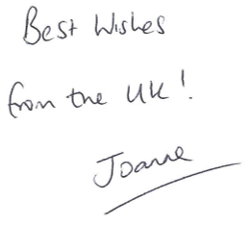 Best Wishes
from the UK!
Joanne